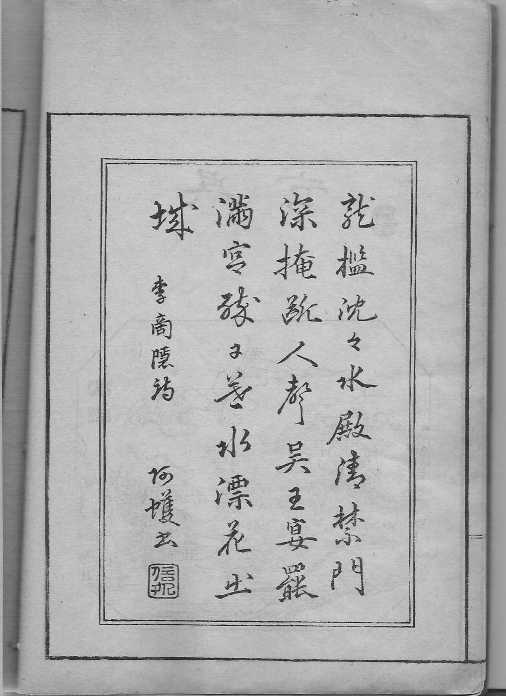 龍檻沈々水殿清禁門
深掩斷人聲吴王宴罷
滿宮醉日暮水漂花出
城 李商隱詩 阿蠖書